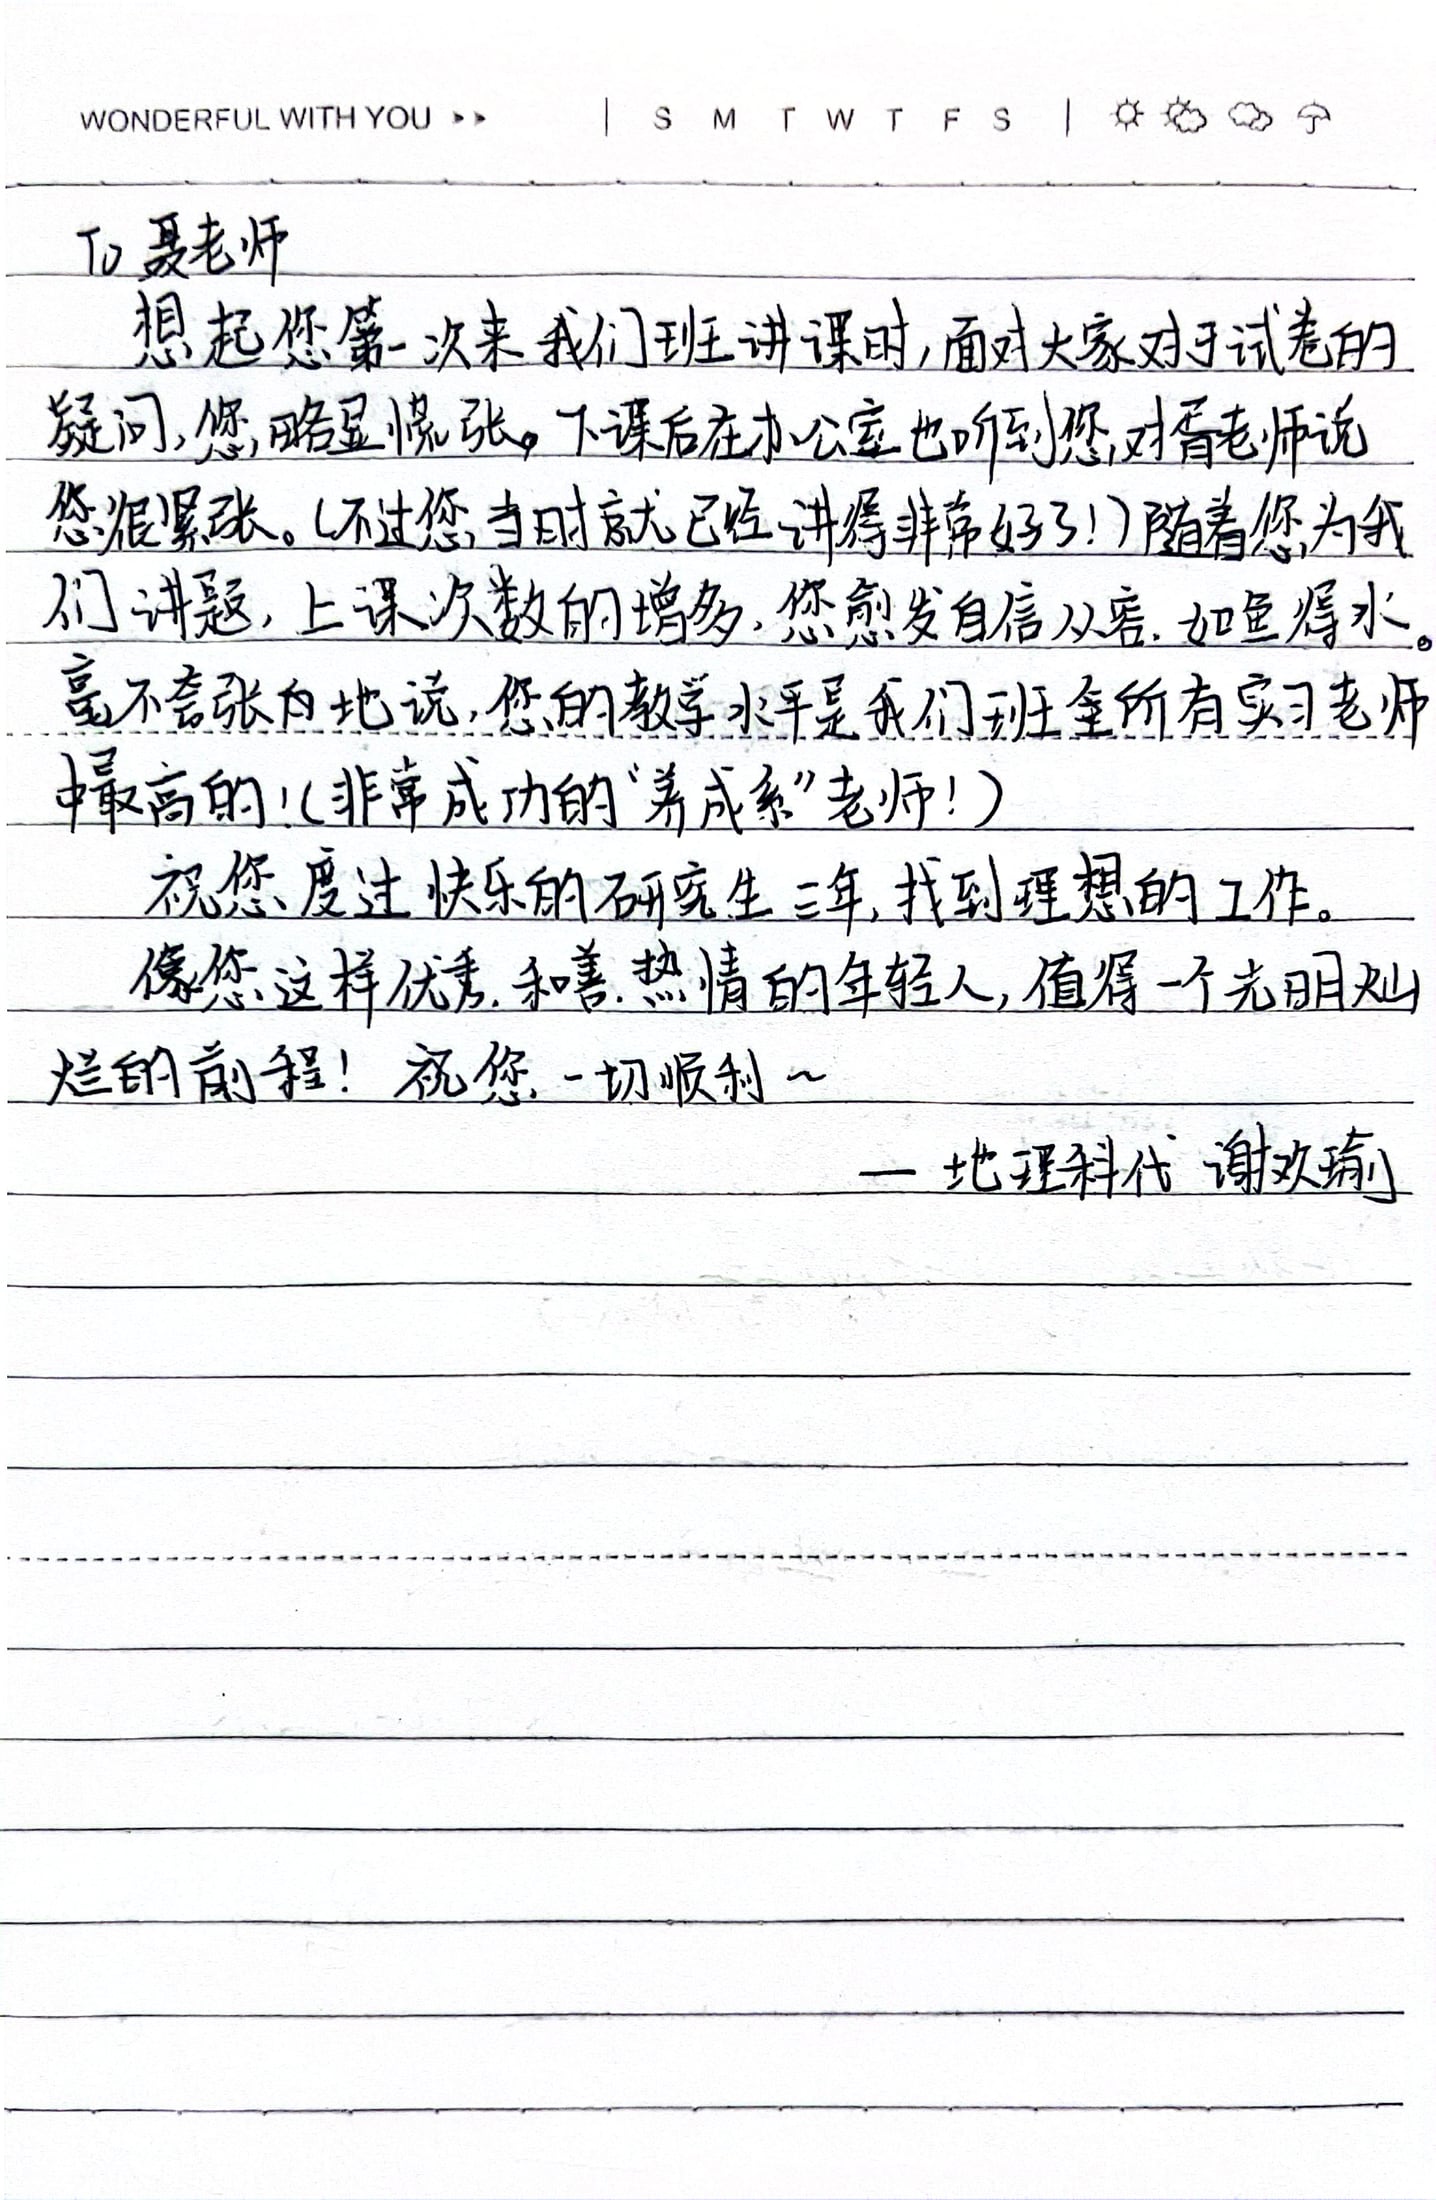 WONDERFUL WITH YOU | S M T W T F S |
To 聂老师
想起您第一次来我们班讲课时,面对大家对于试卷的
疑问,您略显慌张。下课后在办公室也听到您对胥老师说
您很紧张。(不过您当时就已经讲得非常好了!)随着您为我
们讲题,上课次数的增多,您愈发自信从容、如鱼得水。
毫不夸张的地说,您的教学水平是我们班全所有实习老师
中最高的!(非常成功的“养成系”老师!)
祝您度过快乐的研究生三年,找到理想的工作。
像您这样优秀、和善、热情的年轻人,值得一个光明灿
烂的前程! 祝您一切顺利~
— 地理科代 谢欢瑜